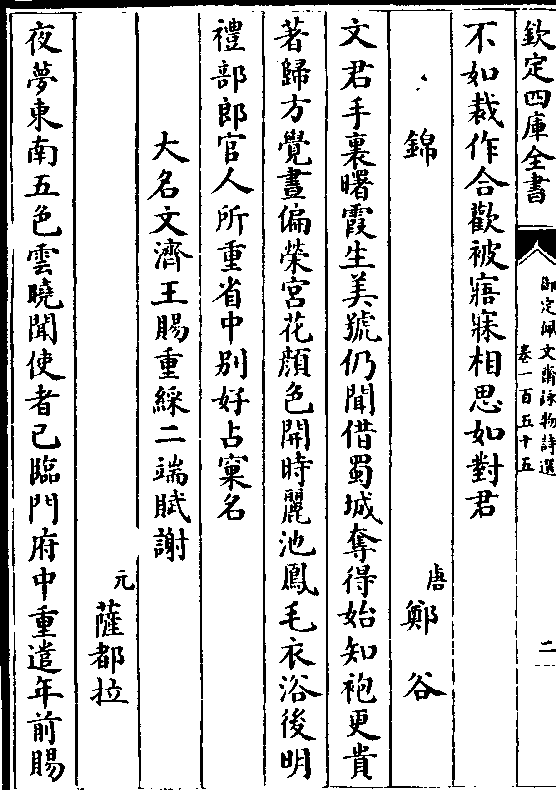 欽定四庫全書
御定佩文齋詠物詩選
卷一百五十五
二
不如裁作合歡被寤寐相思如對君
錦
唐
鄭谷
文君手裏曙霞生美號仍聞借蜀城奪得始知袍更貴
著歸方覺晝偏榮宮花顔色開時麗池鳳毛衣浴後明
禮部郎官人所重省中别好占窠名
大名文濟王賜重綵二端賦謝
元
薩都拉
夜夢東南五色雲曉聞使者已臨門府中重遣年前賜